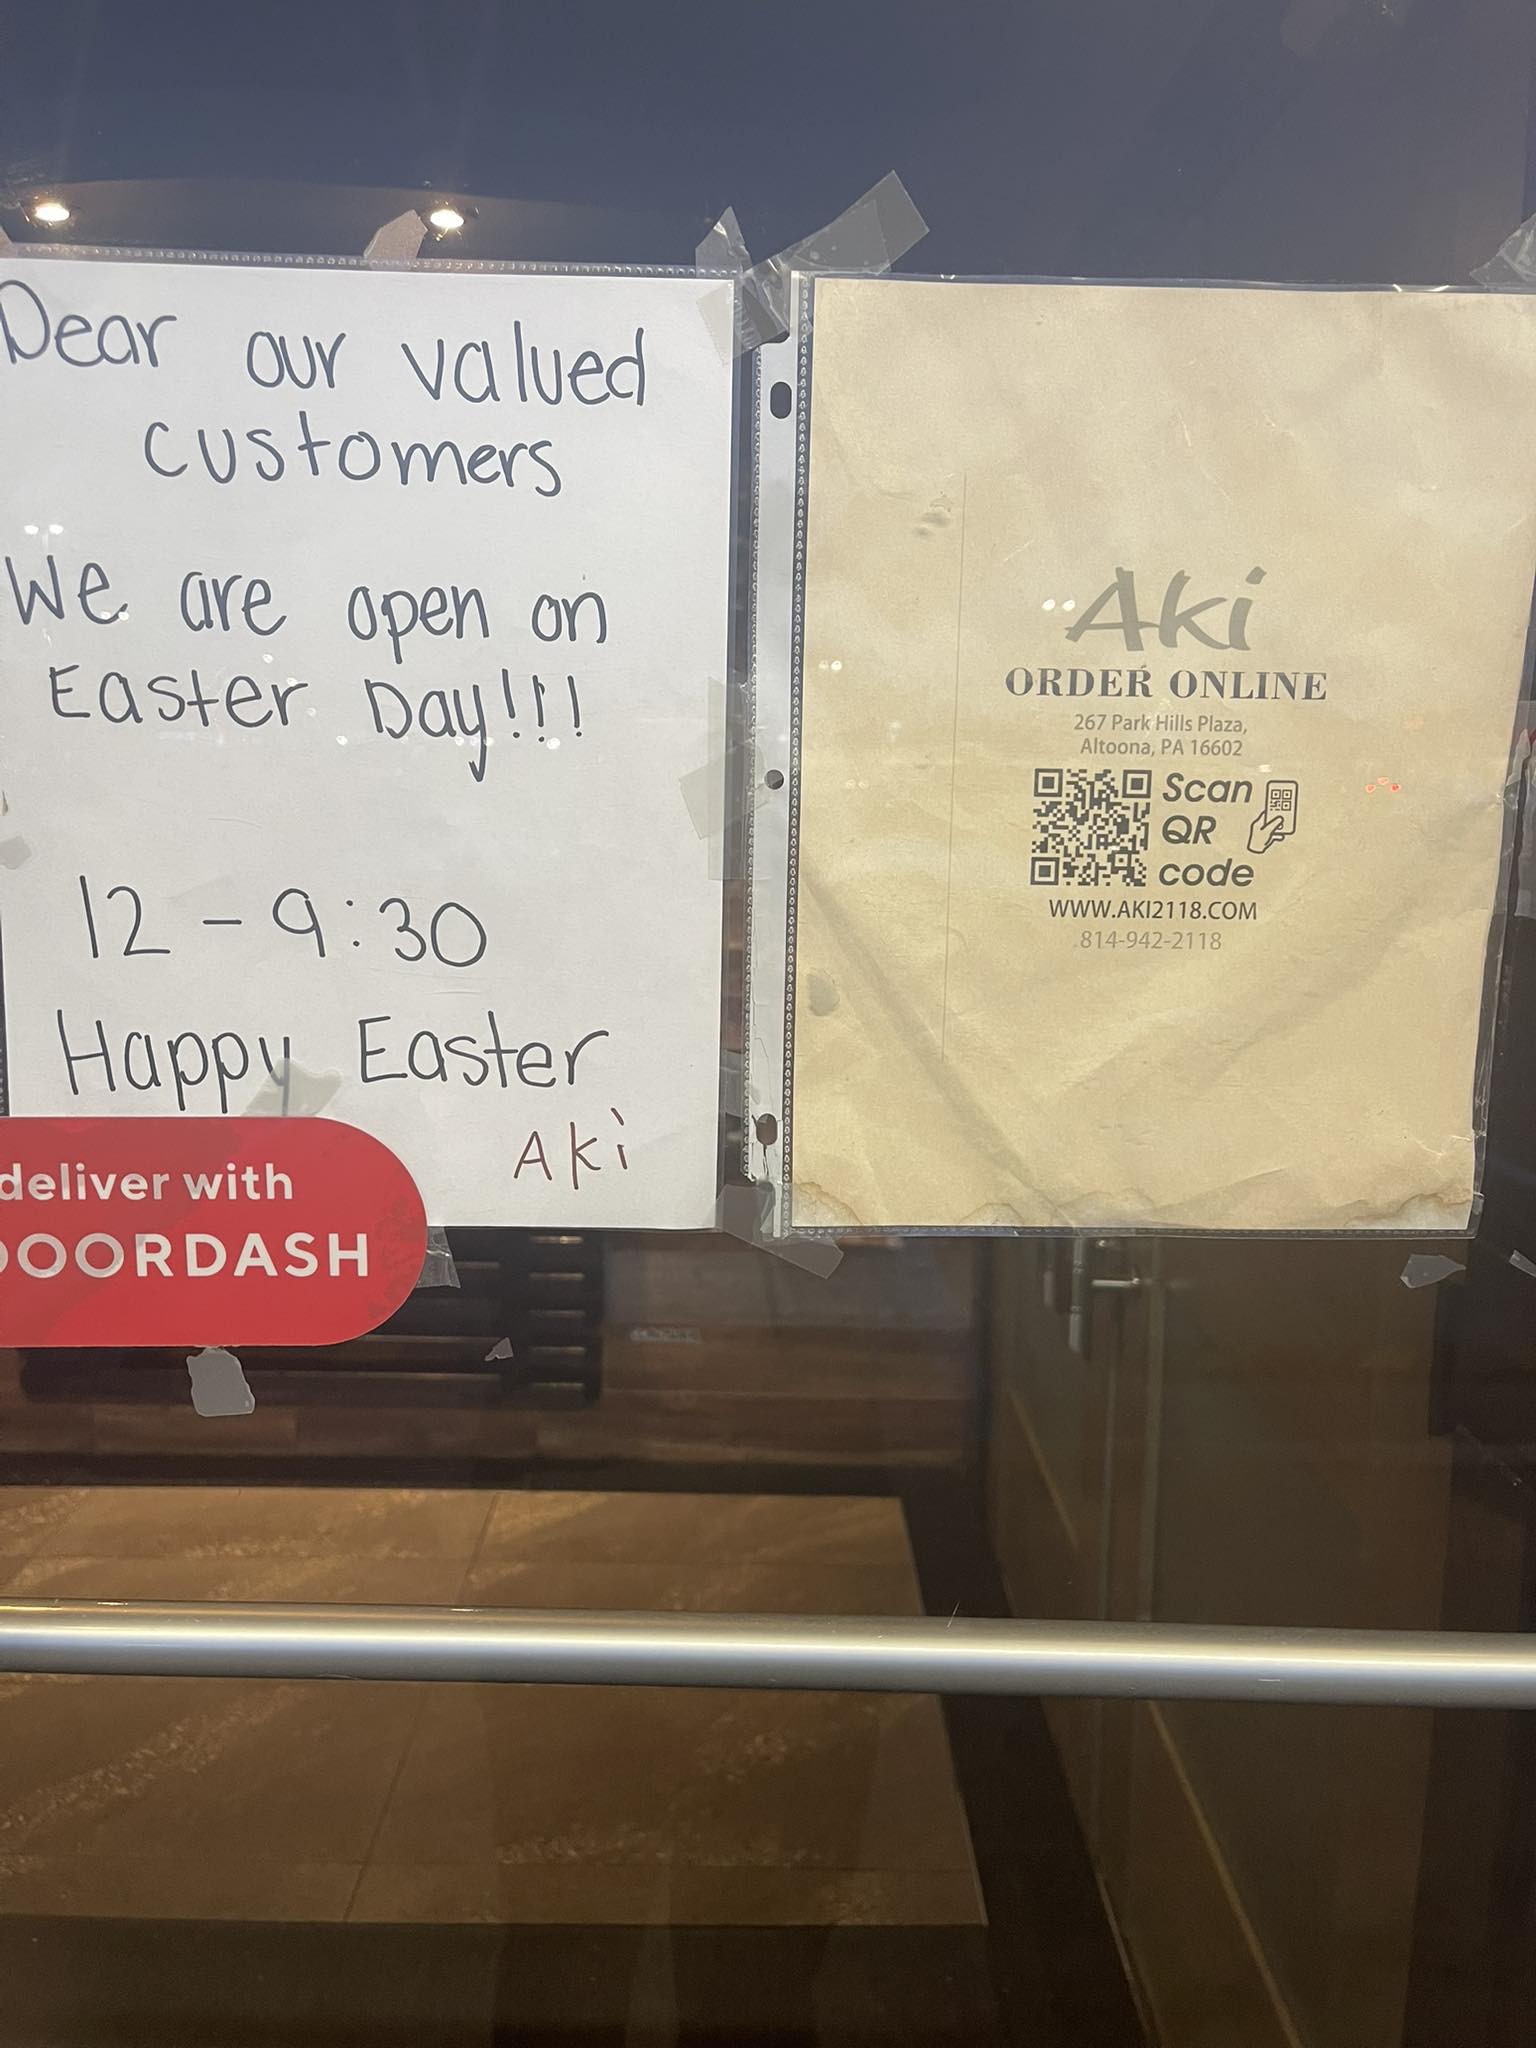 Dear our valued
customers
We are open on
Easter Day!!!
12 - 9:30
Happy Easter
Aki
deliver with
DOORDASH
Aki
ORDER ONLINE
267 Park Hills Plaza,
Altoona, PA 16602
Scan
QR
code
WWW.AKI2118.COM
814-942-2118